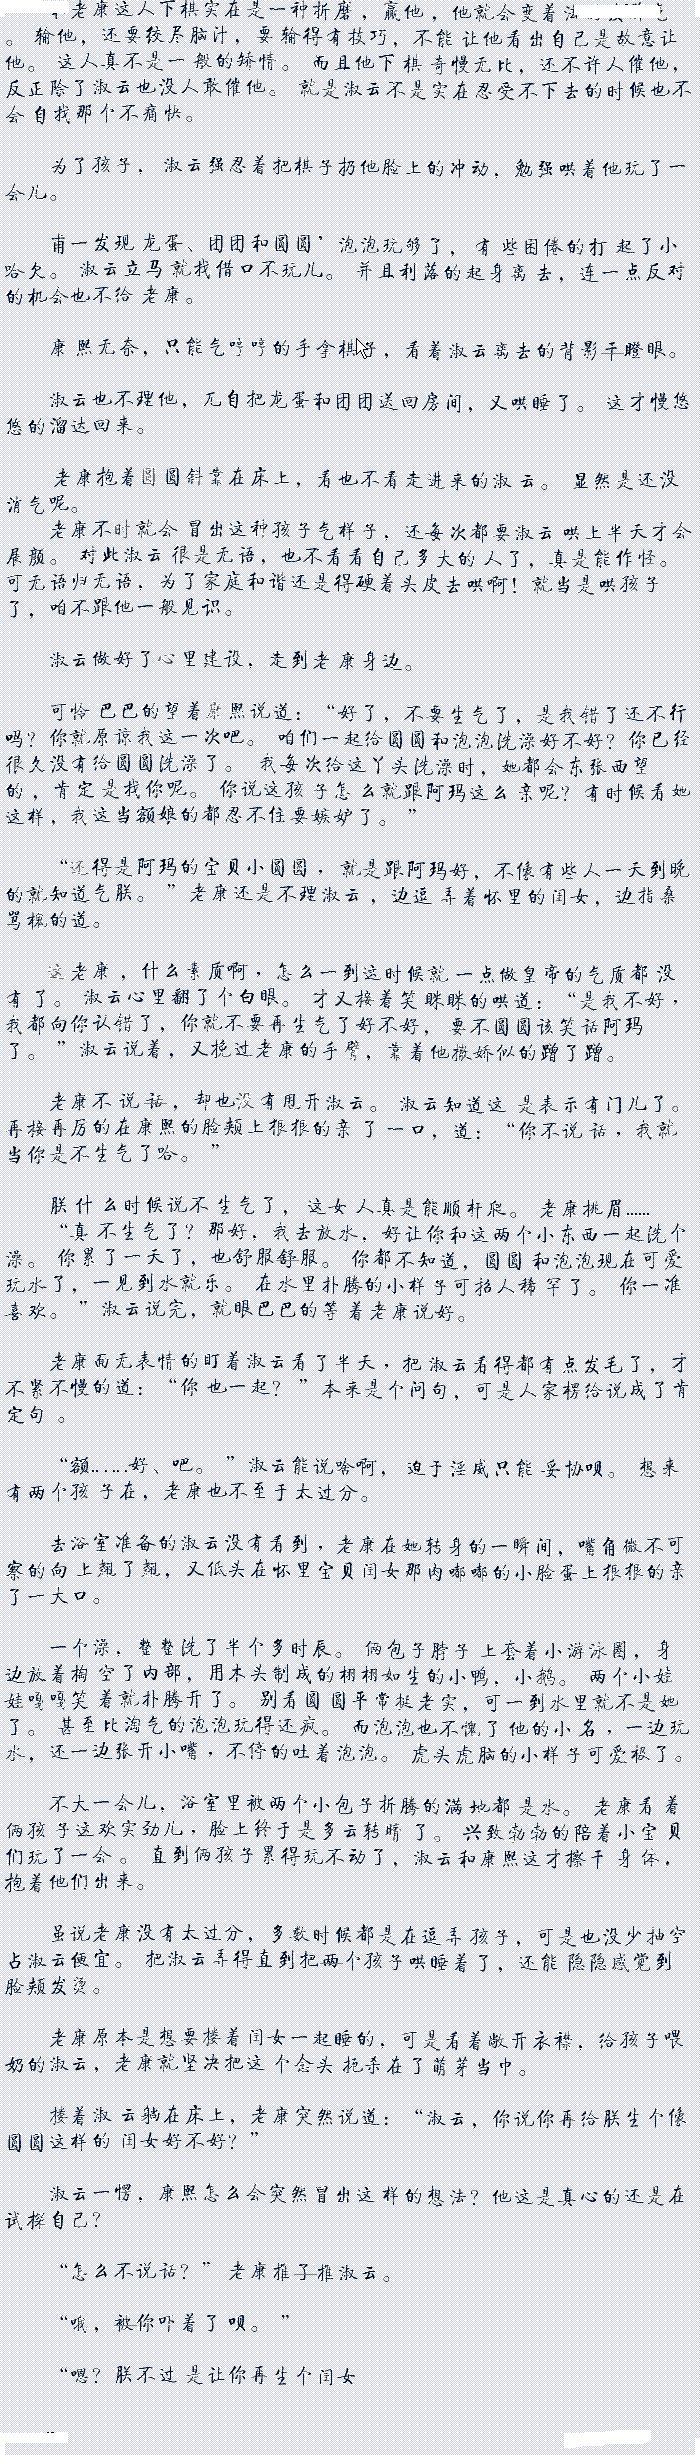 老康这人下棋实在是一种折磨，赢他，他就会变着法
。 输他，还要绞尽脑汁，要输得有技巧，不能让他看出自己是故意让
他。 这人真不是一般的矫情。 而且他下棋奇慢无比，还不许人催他，
反正除了淑云也没人敢催他。 就是淑云不是实在忍受不下去的时候也不
会自找那个不痛快。
为了孩子， 淑云强忍着把棋子扔他脸上的冲动，勉强哄着他玩了一
会儿。
甫一发现龙蛋、团团和圆圆’泡泡玩够了，有些困倦的打起了小
哈欠。 淑云立马就找借口不玩儿。 并且利落的起身离去，连一点反对
的机会也不给老康。
康熙无奈，只能气哼哼的手拿棋子，看着淑云离去的背影干瞪眼。
淑云也不理他，兀自把龙蛋和团团送回房间，又哄睡了。 这才慢悠
悠的溜达回来。
老康抱着圆圆斜靠在床上，看也不看走进来的淑云。 显然是还没
消气呢。
老康不时就会冒出这种孩子气样子，还每次都要淑云哄上半天才会
展颜。 对此淑云很是无语，也不看看自己多大的人了，真是能作怪。
可无语归无语，为了家庭和谐还是得硬着头皮去哄啊！就当是哄孩子
了，咱不跟他一般见识。
淑云做好了心里建设，走到老康身边。
可怜巴巴的望着康熙说道：“好了，不要生气了，是我错了还不行
吗？你就原谅我这一次吧。 咱们一起给圆圆和泡泡洗澡好不好？你已经
很久没有给圆圆洗澡了。 我每次给这丫头洗澡时，她都会东张西望
的，肯定是找你呢。 你说这孩子怎么就跟阿玛这么亲呢？有时候看她
这样，我这当额娘的都忍不住要嫉妒了。”
“还得是阿玛的宝贝小圆圆，就是跟阿玛好，不像有些人一天到晚
的就知道气朕。 ”老康还是不理淑云，边逗弄着怀里的闺女，边指桑
骂槐的道。
这老康，什么素质啊，怎么一到这时候就一点做皇帝的气质都没
有了。 淑云心里翻了个白眼。 才又接着笑眯眯的哄道：“是我不好，
我都向你认错了，你就不要再生气了好不好，要不圆圆该笑话阿玛
了。 ”淑云说着，又挽过老康的手臂，靠着他撒娇似的蹭了蹭。
老康不说话，却也没有甩开淑云。 淑云知道这是表示有门儿了。
再接再厉的在康熙的脸颊上狠狠的亲了一口，道：“你不说话，我就
当你是不生气了哈。”
朕什么时候说不生气了，这女人真是能顺杆爬。 老康挑眉……
“真不生气了？那好，我去放水，好让你和这两个小东西一起洗个
澡。 你累了一天了，也舒服舒服。 你都不知道，圆圆和泡泡现在可爱
玩水了，一见到水就乐。 在水里扑腾的小样子可招人稀罕了。 你一准
喜欢。 ”淑云说完，就眼巴巴的等着老康说好。
老康面无表情的盯着淑云看了半天，把淑云看得都有点发毛了，才
不紧不慢的道：“你也一起？ ”本来是个问句，可是人家楞给说成了肯
定句 。
“额……好、吧。 ”淑云能说啥啊， 迫于淫威只能妥协呗。 想来
有两个孩子在，老康也不至于太过分。
去浴室准备的淑云没有看到，老康在她转身的一瞬间，嘴角微不可
察的向上翘了翘，又低头在怀里宝贝闺女那肉嘟嘟的小脸蛋上狠狠的亲
了一大口。
一个澡，整整洗了半个多时辰。 俩包子脖子上套着小游泳圈，身
边放着掏空了内部，用木头制成的栩栩如生的小鸭，小鹅。 两个小娃
娃嘎嘎笑着就扑腾开了。 别看圆圆平常挺老实，可一到水里就不是她
了。 甚至比淘气的泡泡玩得还疯。 而泡泡也不愧了他的小名，一边玩
水，还一边张开小嘴，不停的吐着泡泡。 虎头虎脑的小样子可爱极了。
不大一会儿，浴室里被两个小包子折腾的满地都是水。 老康看着
俩孩子这欢实劲儿，脸上终于是多云转晴了。 兴致勃勃的陪着小宝贝
们玩了一会。 直到俩孩子累得玩不动了，淑云和康熙这才擦干身体，
抱着他们出来。
虽说老康没有太过分，多数时候都是在逗弄孩子，可是也没少抽空
占淑云便宜。 把淑云弄得直到把两个孩子哄睡着了，还能隐隐感觉到
脸颊发烫。
老康原本是想要搂着闺女一起睡的，可是看着敞开衣襟，给孩子喂
奶的淑云，老康就坚决把这个念头扼杀在了萌芽当中。
搂着淑云躺在床上，老康突然说道：“淑云，你说你再给朕生个像
圆圆这样的闺女好不好？”
淑云一愣，康熙怎么会突然冒出这样的想法？他这是真心的还是在
试探自己？
“怎么不说话？” 老康推了推淑云。
“哦，被你吓着了呗。 ”
“嗯？朕不过是让你再生个闺女